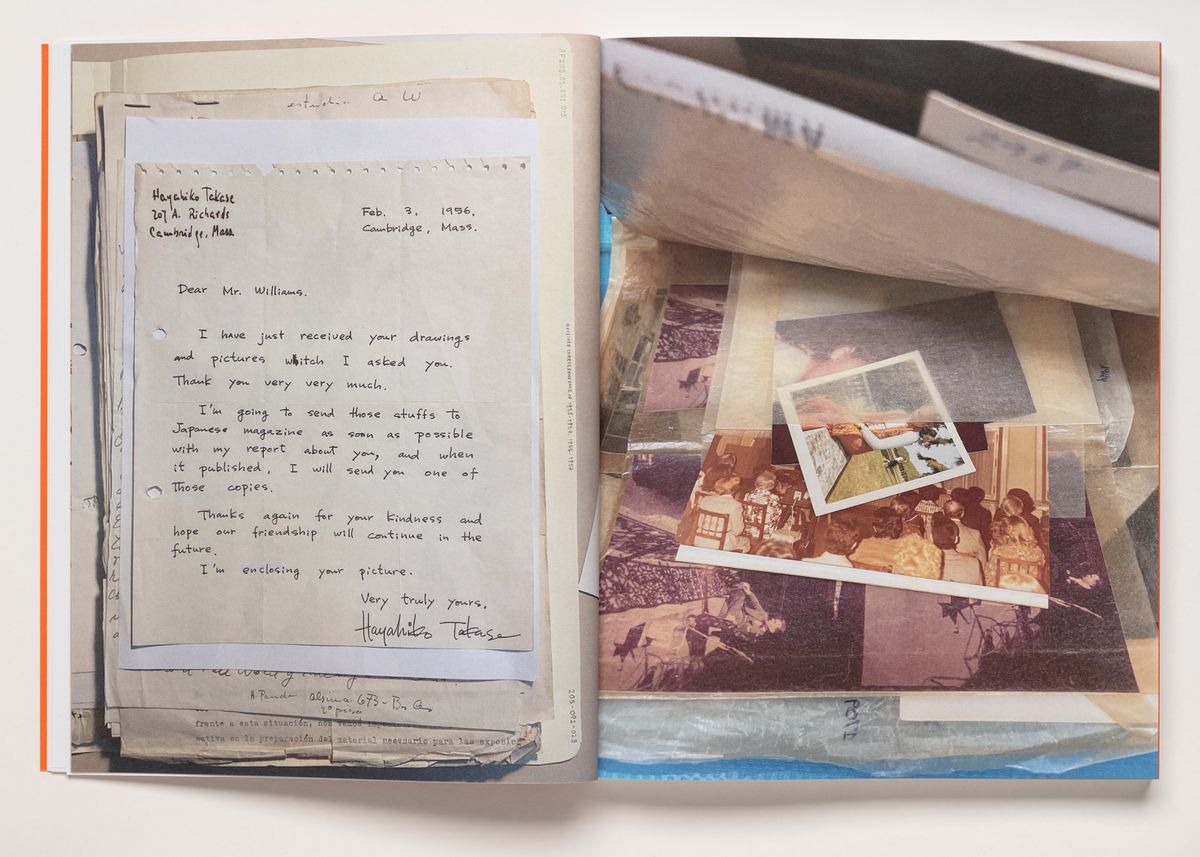 estudio a W
Hayahiko Takase
207 A. Richards
Cambridge, Mass
Feb. 3, 1956.
Cambridge, Mass.
Dear Mr. Williams.
I have just received your drawings
and pictures whitch I asked you.
Thank you very very much.
I'm going to send those stuffs to
Japanese magazine as soon as possible
with my report about you, and when
it published, I will send you one of
those copies.
Thanks again for your kindness and
hope our friendship will continue in the
future.
I'm enclosing your picture.
Very truly yours,
Hayahiko Takase
Alsina 673 - Bs As
2º piso
frente a esta situación, nos vemos
nativa en la preparación del material necesario para las exposic
205-092-029